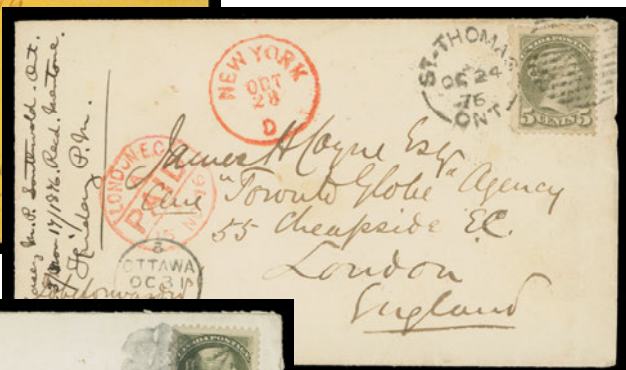 NEW YORK
OCT
28
D
ST. THOMAS
OC 24
76
ONT
CANADA POSTAGE
5 CENTS 5
James H Coyne Esq
Care "Toronto Globe" Agency
55 Cheapside E.C.
London
England
LONDON.E.C
PAID
OTTAWA
OC 31
M.P. Southwold. Ont.
Nov 17/1876. Recd. Mentone.
Friday P.M.